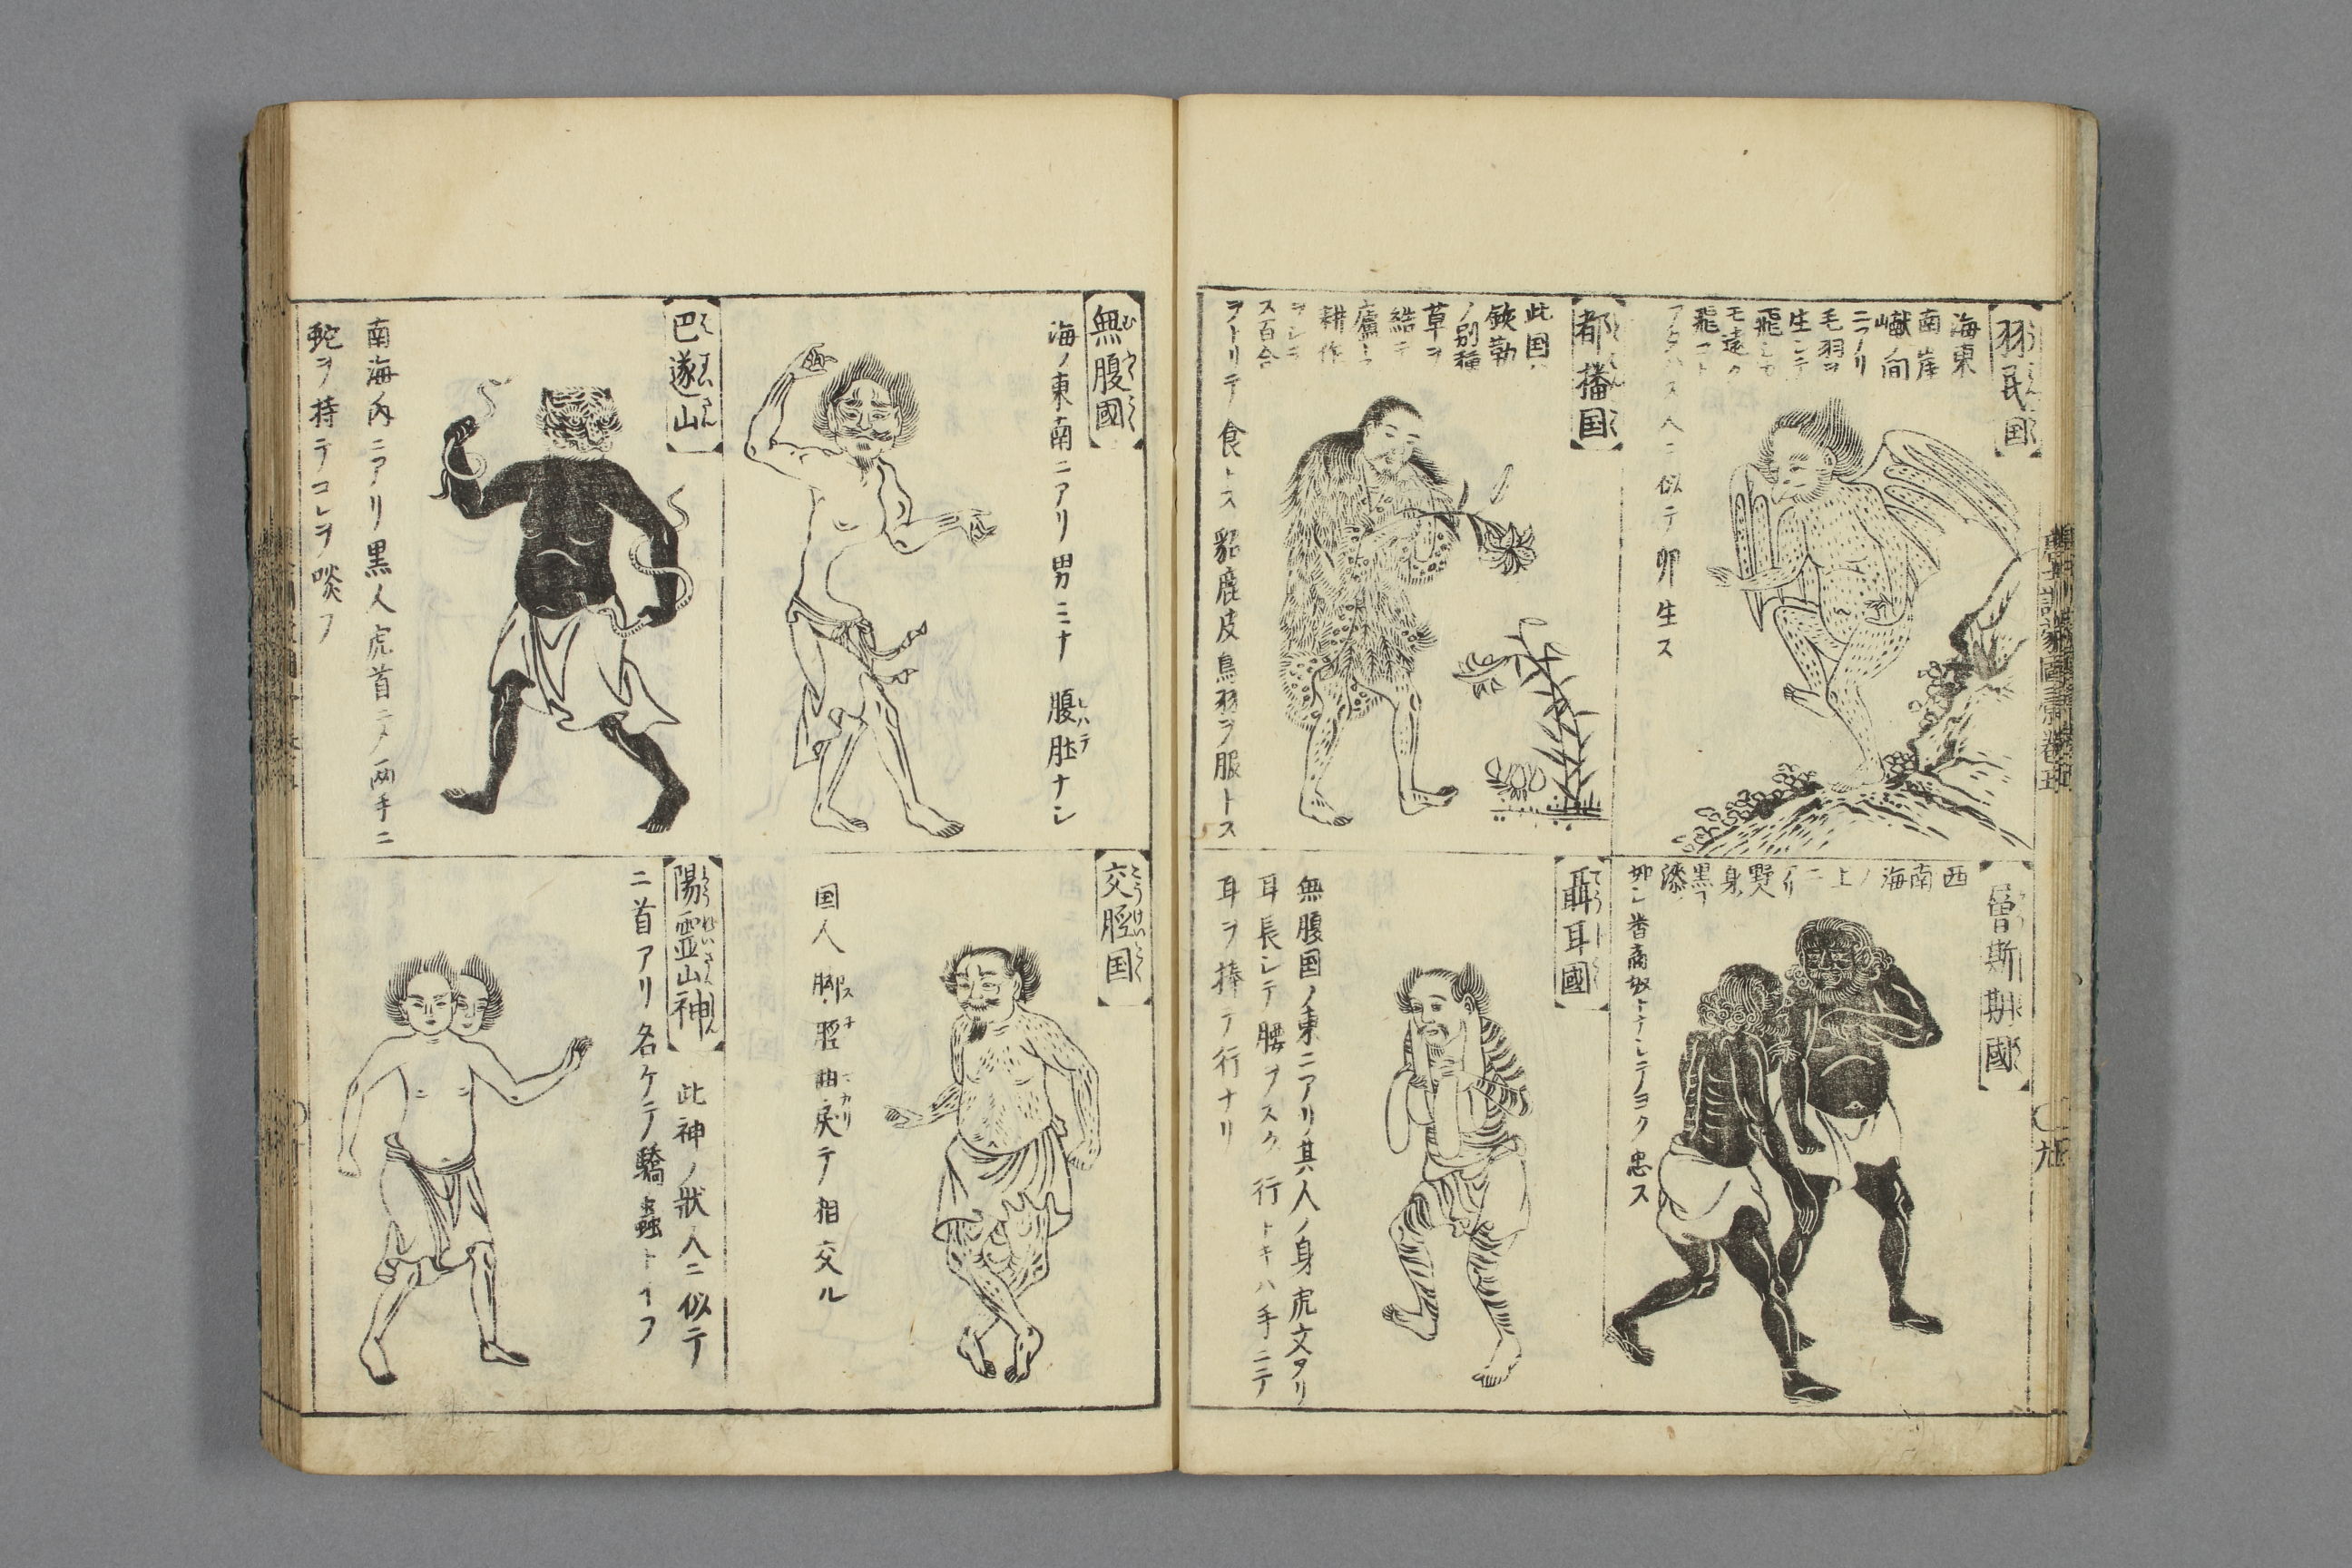 羽民国
海東
南崖
巘ノ間
ニアリ
毛羽ヲ
生シテ
飛シカ
モ遠ク
飛コト
アタハス人ニ似テ卵生ス
都播国
此国ハ
鉄勒
ノ別種
草ヲ
結テ
廬トス
耕作
ヲシラ
ス百合
ヲトリテ食トス貂鹿皮鳥羽ヲ服トス
曽斯期國
西
南
海
ノ
上
ニ
身
黒フ
漆
蕃商奴トナシテヨク忠ス
聶耳國
無腹国ノ東ニアリ其人ノ身虎文アリ
耳長シテ腰ヲスク行トキハ手ニテ
耳ヲ捧テ行ナリ
無腹國
海ノ東南ニアリ男ミナ腹肚ナシ
巴遂山
南海ノ内ニアリ黒人虎首ニメ両手ニ
蛇ヲ持テコレヲ啖フ
交脛国
国人脚脛曲戻テ相交ル
陽霊山神
此神ノ状人ニ似テ
二首アリ名ケテ驕蟲トイフ